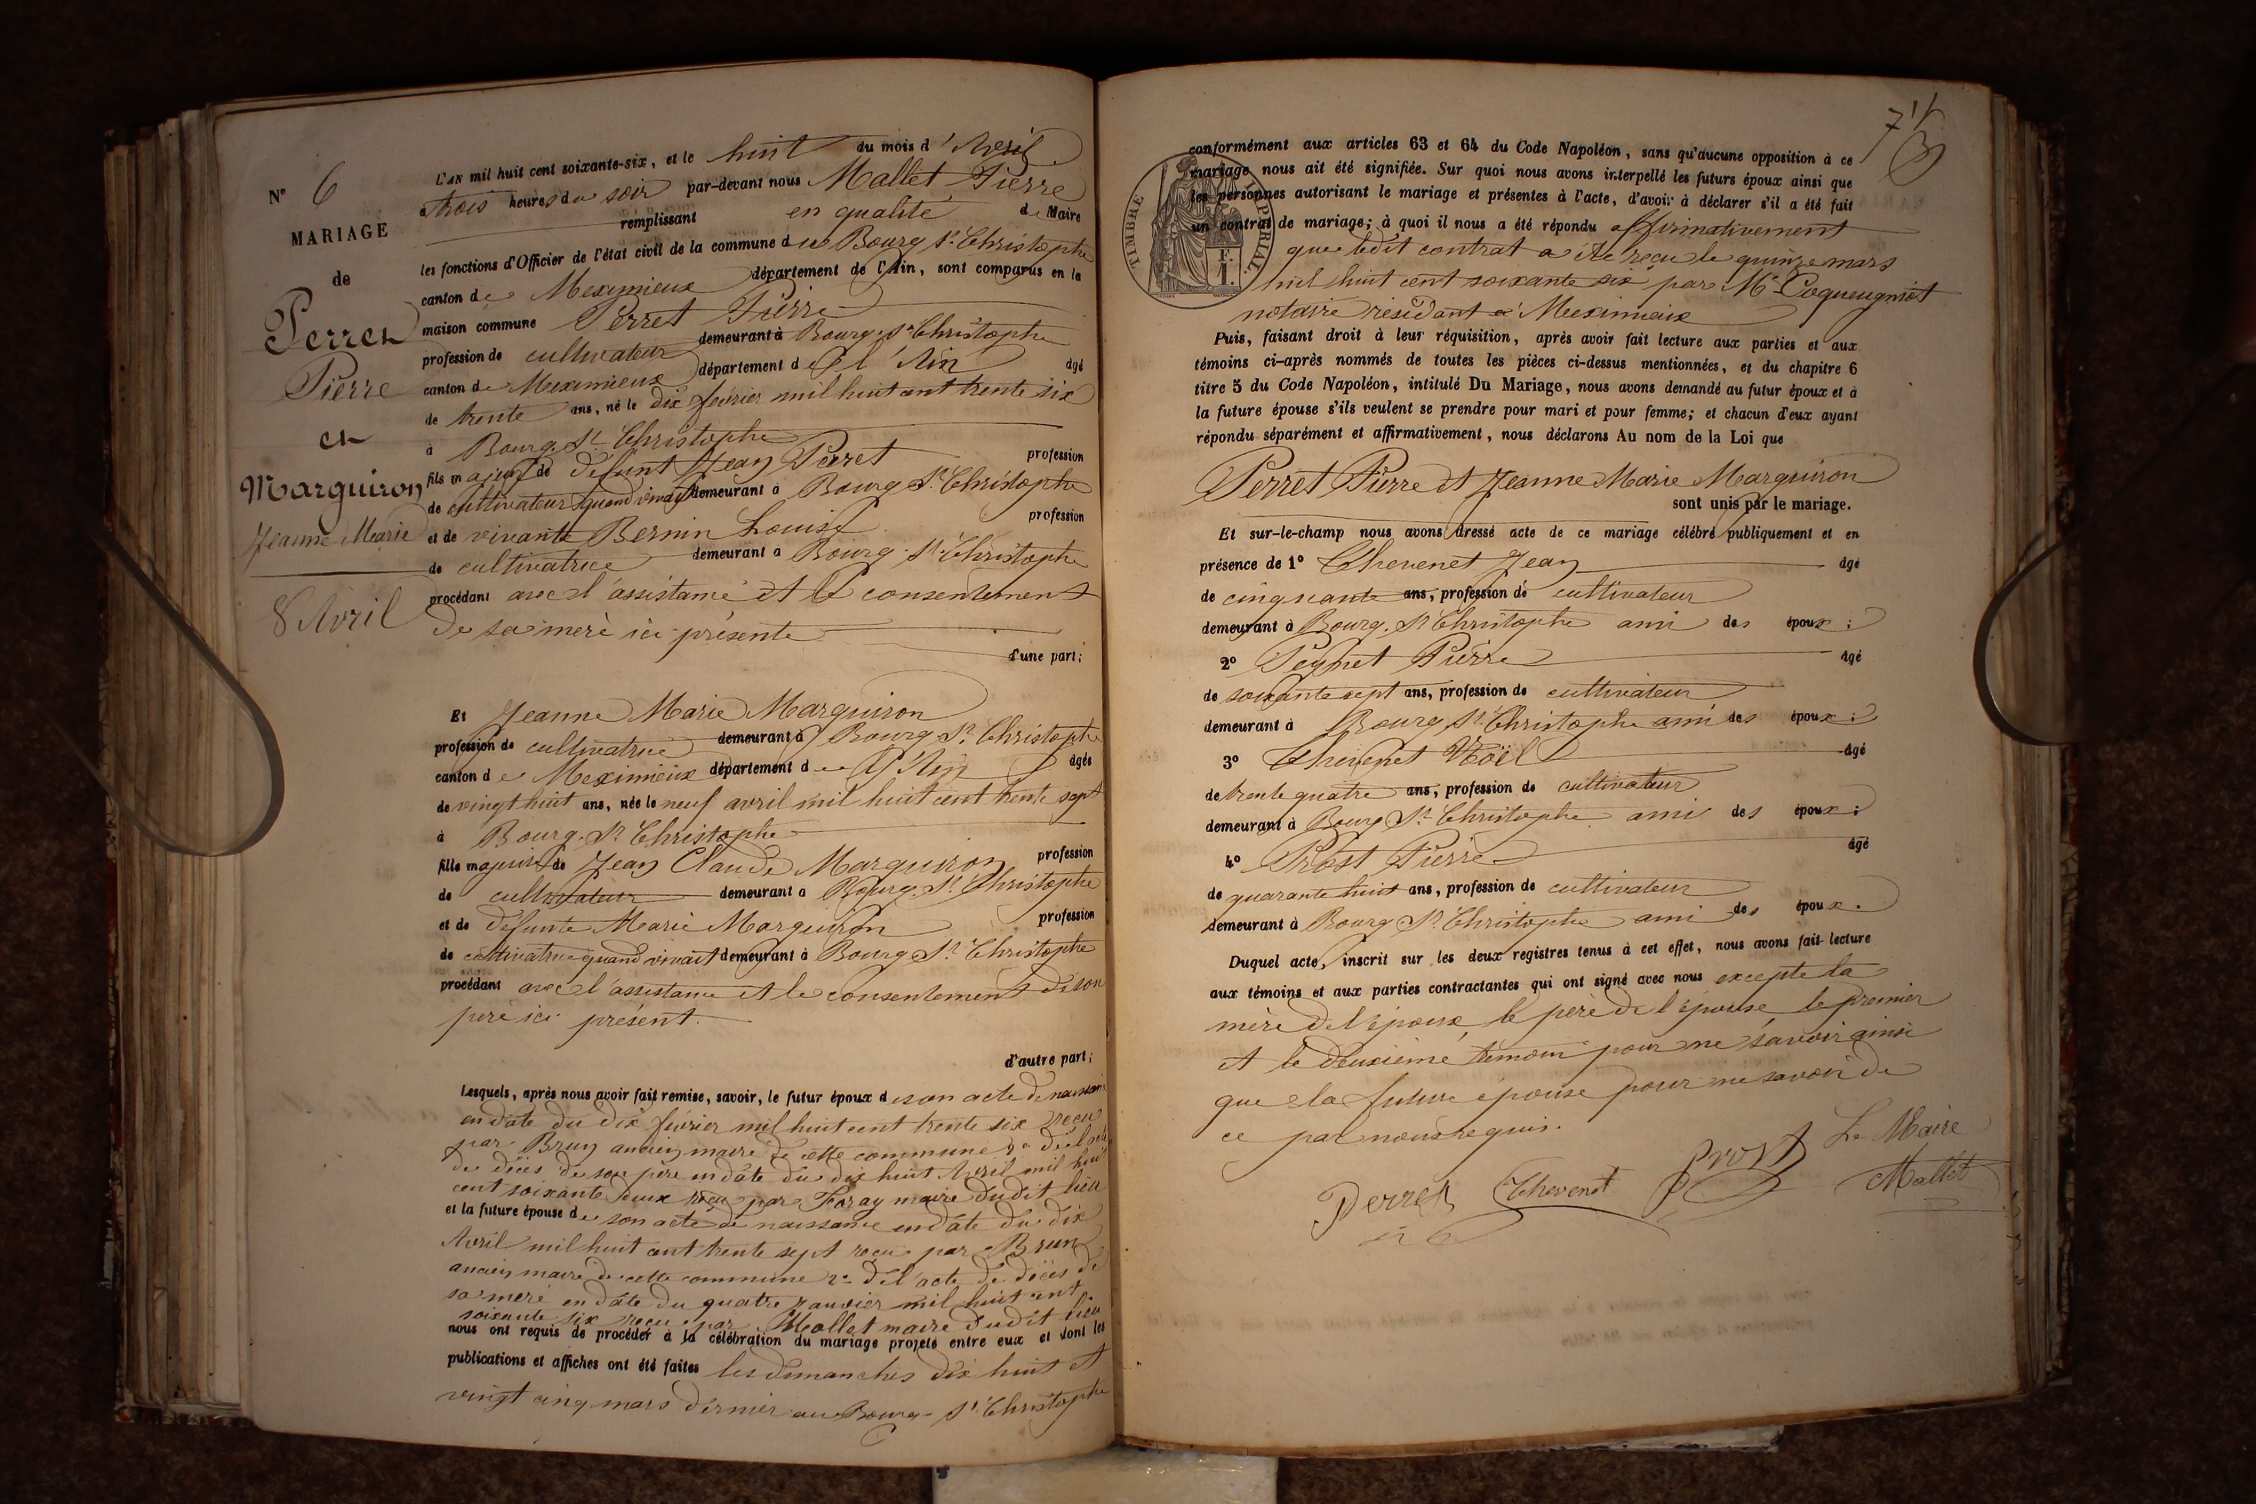 N° 6
MARIAGE
de
Perret
Pierre
et
Marguiron
Jeanne Marie
8 Avril
L'AN mil huit cent soixante-six, et le huit du mois d'Avril
à trois heures du soir par-devant nous Mallet Pierre
remplissant en qualité de Maire
les fonctions d'Officier de l'état civil de la commune de Bourg St Christophe
canton de Meximieux département de l'Ain, sont comparus en la
maison commune Perret Pierre
profession de cultivateur demeurant à Bourg St Christophe
canton de Meximieux département de l'Ain âgé
de trente ans, né le dix février mil huit cent trente six
à Bourg St Christophe
fils majeur de défunt Jean Perret profession
de cultivateur quand vivait demeurant à Bourg St Christophe
et de vivante Bernin Louise profession
de cultivatrice demeurant à Bourg St Christophe
procédant avec l'assistance et le consentement
de sa mère ici présente
d'une part;
Et Jeanne Marie Marguiron
profession de cultivatrice demeurant à Bourg St Christophe
canton de Meximieux département de l'Ain âgée
de vingt huit ans, née le neuf avril mil huit cent trente sept
à Bourg St Christophe
fille majeure de Jean Claude Marguiron profession
de cultivateur demeurant à Bourg St Christophe
et de défunte Marie Marguiron profession
de cultivatrice quand vivait demeurant à Bourg St Christophe
procédant avec l'assistance et le consentement de son
père ici présent.
d'autre part;
Lesquels, après nous avoir fait remise, savoir, le futur époux de son acte de naissance
en date du dix février mil huit cent trente six reçu
par Brun ancien maire de cette commune 2° de l'acte
de décès de son père en date du dix huit Avril mil huit
cent soixante deux reçu par Foray maire dudit lieu
et la future épouse de son acte de naissance en date du dix
Avril mil huit cent trente sept reçu par Brun
ancien maire de cette commune 2° de l'acte de décès de
sa mère en date du quatre janvier mil huit cent
soixante six reçu par Mallet maire dudit lieu
nous ont requis de procéder à la célébration du mariage projeté entre eux et dont les
publications et affiches ont été faites les dimanches dix huit et
vingt cinq mars dernier au Bourg St Christophe
conformément aux articles 63 et 64 du Code Napoléon, sans qu'aucune opposition à ce
mariage nous ait été signifiée. Sur quoi nous avons interpellé les futurs époux ainsi que
les personnes autorisant le mariage et présentes à l'acte, d'avoir à déclarer s'il a été fait
un contrat de mariage; à quoi il nous a été répondu affirmativement
que ledit contrat a été reçu le quinze mars
mil huit cent soixante six par Me Coqueugniot
notaire résidant à Meximieux
TIMBRE IMPÉRIAL
F.
1.
Puis, faisant droit à leur réquisition, après avoir fait lecture aux parties et aux
témoins ci-après nommés de toutes les pièces ci-dessus mentionnées, et du chapitre 6
titre 5 du Code Napoléon, intitulé Du Mariage, nous avons demandé au futur époux et à
la future épouse s'ils veulent se prendre pour mari et pour femme; et chacun d'eux ayant
répondu séparément et affirmativement, nous déclarons Au nom de la Loi que
Perret Pierre et Jeanne Marie Marguiron
sont unis par le mariage.
Et sur-le-champ nous avons dressé acte de ce mariage célébré publiquement et en
présence de 1° Chevenet Jean âgé
de cinquante ans, profession de cultivateur
demeurant à Bourg St Christophe ami des époux;
2° Peynet Pierre âgé
de soixante sept ans, profession de cultivateur
demeurant à Bourg St Christophe ami des époux;
3° Thevenet Noël âgé
de trente quatre ans, profession de cultivateur
demeurant à Bourg St Christophe ami des époux;
4° Prost Pierre âgé
de quarante huit ans, profession de cultivateur
demeurant à Bourg St Christophe ami des époux.
Duquel acte, inscrit sur les deux registres tenus à cet effet, nous avons fait lecture
aux témoins et aux parties contractantes qui ont signé avec nous excepté la
mère de l'époux, le père de l'épouse, le premier
et le deuxième témoin pour ne savoir ainsi
que la future épouse pour ne savoir de
ce par nous requis.
Le Maire
Perret Thevenet Prost Mallet